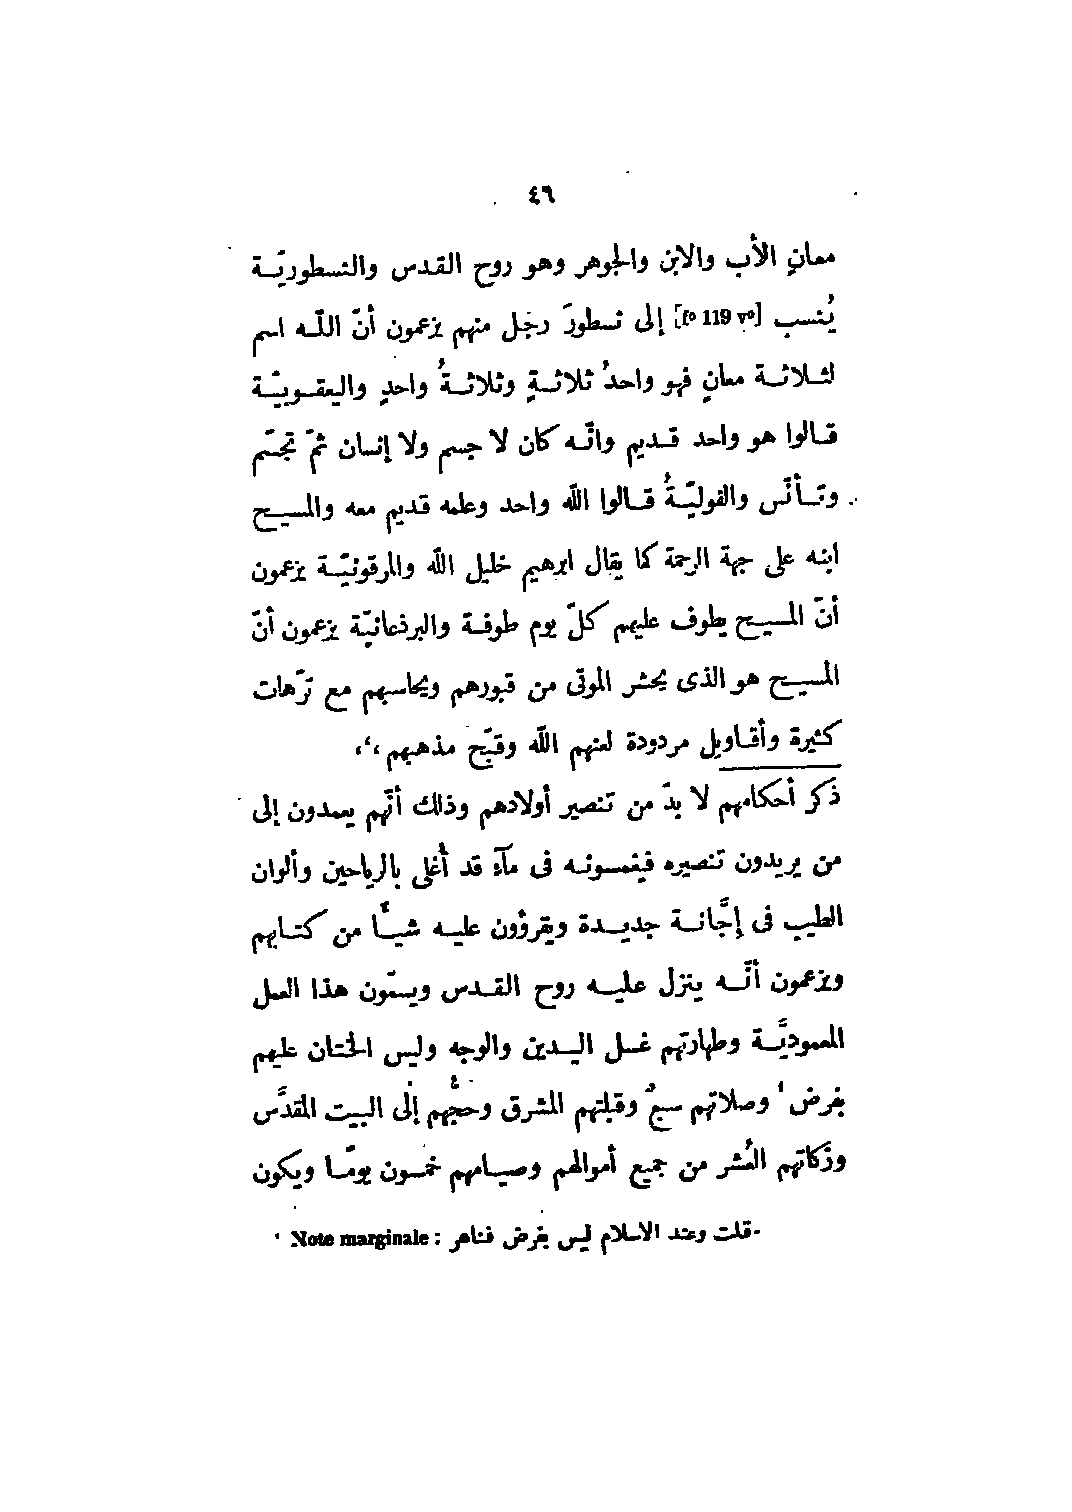 ٤٦
معانٍ الأب والابن والجوهر وهو روح القدس والنسطوريّة
يُنسب [f° 119 v°] إلى نسطورَ رجل منهم يزعمون أنّ اللّه اسم
لثلاثة معانٍ فهو واحدُ ثلاثةٍ وثلاثةُ واحدٍ واليعقوبيّة
قالوا هو واحد قديم وانّه كان لا جسم ولا إنسان ثمّ تجسّم
وتأنّس والفوليّةُ قالوا اللّه واحد وعلمه قديم معه والمسيح
ابنه على جهة الرحمة كما يقال ابرهيم خليل اللّه والمرقونيّة يزعمون
أنّ المسيح يطوف عليهم كلّ يوم طوفة والبرذعانيّة يزعمون أنّ
المسيح هو الذى يحشر الموتى من قبورهم ويحاسبهم مع ترّهات
كثيرة وأقاويل مردودة لعنهم اللّه وقبّح مذهبهم ،‘،
ذكر أحكامهم لا بدّ من تنصير أولادهم وذلك أنّهم يعمدون إلى
من يريدون تنصيره فيغمسونه فى مآء قد أُغلى بالرياحين وألوان
الطيب فى إجَّانة جديدة ويقرؤون عليه شيـًٔا من كتابهم
ويزعمون أنّه ينزل عليه روح القدس ويسمّون هذا العمل
المعموديَّة وطهارتهم غسل اليدين والوجه وليس الختان عليهم
بفرض ¹ وصلاتهم سبعٌ وقبلتهم المشرق وحجُّهم إلى البيت المقدَّس
وزكاتهم العُشر من جميع أموالهم وصيامهم خمسون يومًا ويكون
¹ Note marginale : قلت وعند الاسلام ليس بفرض فناهر